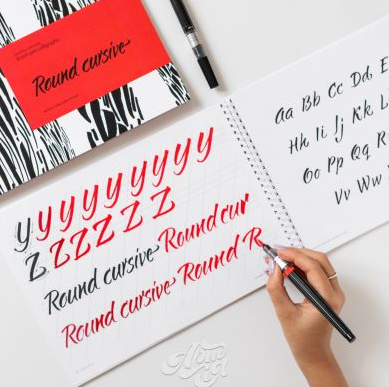 Round cursive
y y y y y y y y y
z z z z z z z
Round cursive Round cur
Round cursive Round R
Aa Bb Cc Dd E
Hh Ii Jj Kk L
Oo Pp Qq R
Vv Ww